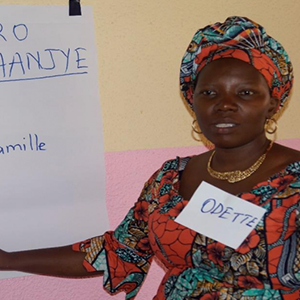 RO
AANJYE
amille
ODETTE